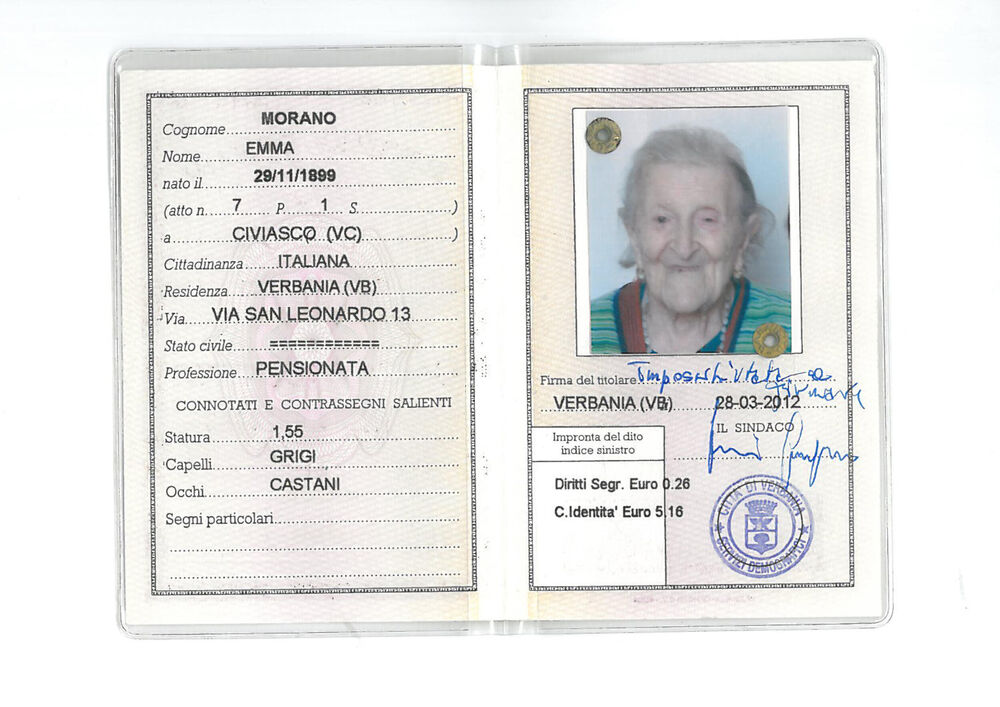 Cognome MORANO
Nome EMMA
nato il 29/11/1899
(atto n. 7 P. 1 S. )
a CIVIASCO (VC) )
Cittadinanza ITALIANA
Residenza VERBANIA (VB)
Via VIA SAN LEONARDO 13
Stato civile ============
Professione PENSIONATA
CONNOTATI E CONTRASSEGNI SALIENTI
Statura 1,55
Capelli GRIGI
Occhi CASTANI
Segni particolari
Firma del titolare Impossibilitata a
firmare
VERBANIA (VB) 28-03-2012
IL SINDACO
Impronta del dito
indice sinistro
Diritti Segr. Euro 0.26
C.Identita' Euro 5.16
CITTÀ DI VERBANIA
SERVIZI DEMOGRAFICI